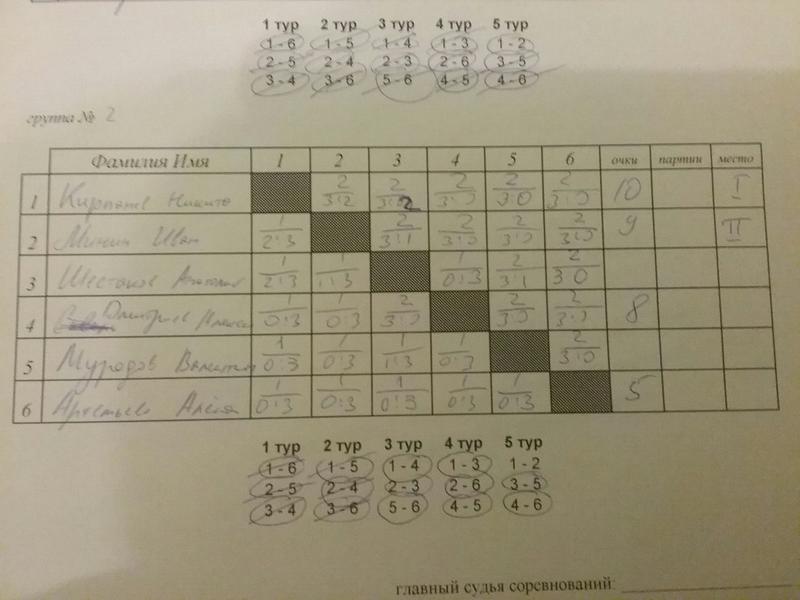 1 тур 2 тур 3 тур 4 тур 5 тур
1 - 6 1 - 5 1 - 4 1 - 3 1 - 2
2 - 5 2 - 4 2 - 3 2 - 6 3 - 5
3 - 4 3 - 6 5 - 6 4 - 5 4 - 6
группа № 2
Фамилия Имя 1 2 3 4 5 6 очки партии место
2 2 2 2 2
1 Никита 3:2 3:2 3:0 3:0 3:0 10 I
1 2 2 2 2
2 Минин Иван 2:3 3:1 3:0 3:0 3:0 9 II
1 1 1 2 2
3 Шестаков 2:3 1:3 0:3 3:1 3:0
1 1 2 2 2
4 Дмитриев 0:3 0:3 3:0 3:0 3:0 8
1 1 1 1 2
5 Муродов Валентин 0:3 0:3 1:3 0:3 3:0
1 1 1 1 1
6 0:3 0:3 0:3 0:3 0:3 5
1 тур 2 тур 3 тур 4 тур 5 тур
1 - 6 1 - 5 1 - 4 1 - 3 1 - 2
2 - 5 2 - 4 2 - 3 2 - 6 3 - 5
3 - 4 3 - 6 5 - 6 4 - 5 4 - 6
главный судья соревнований: